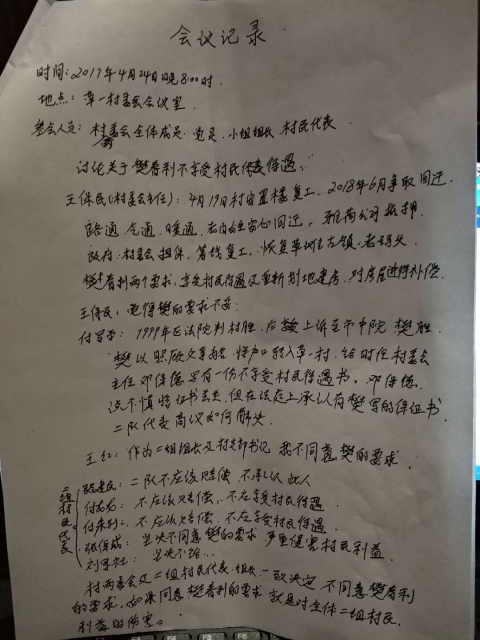 会议记录
时间：2017年4月24日晚8:00时.
地点：草一村委会会议室.
参会人员：村委会全体成员.党员.小组组长 村民代表
讨论关于樊春利不享受村民代表待遇。
王保民(村委会主任)：4月19日村安置楼复工，2018年6月争取回迁.
路通 气通 暖通. 回迁, 公司抵押
政府.村委会担保.筹钱复工，恢复草
樊春利两个要求，享受村民待遇又重新划地建房，对房屋进行补偿
王保民，觉得樊的要求不妥.
付 ：1999年区法院判村胜，后 上诉至市中院 樊胜.
樊以照顾父 ，将户口转入草一村，给时任村委会
主任邓伟德写有一份不享受村民待遇书。邓伟德
说不慎将证书丢失，但在法庭上承认有樊写的保证书.
二队代表商议如何解决
王红：作为二组组长及村支部书记 我不同意樊的要求.
二组村民代表
民：二队不应该赔偿 不承认此人
付 ：不应该赔偿，不应享受村民待遇
付 利：不应该赔偿，不应享受村民待遇
张 成：坚决不同意樊的要求 严重侵害村民利益.
刘军社：坚决不
村两委会及二组村民代表.组长一致决定，不同意樊春利
的要求，如果同意樊春利的要求 就是对全体二组村民
利益的伤害。